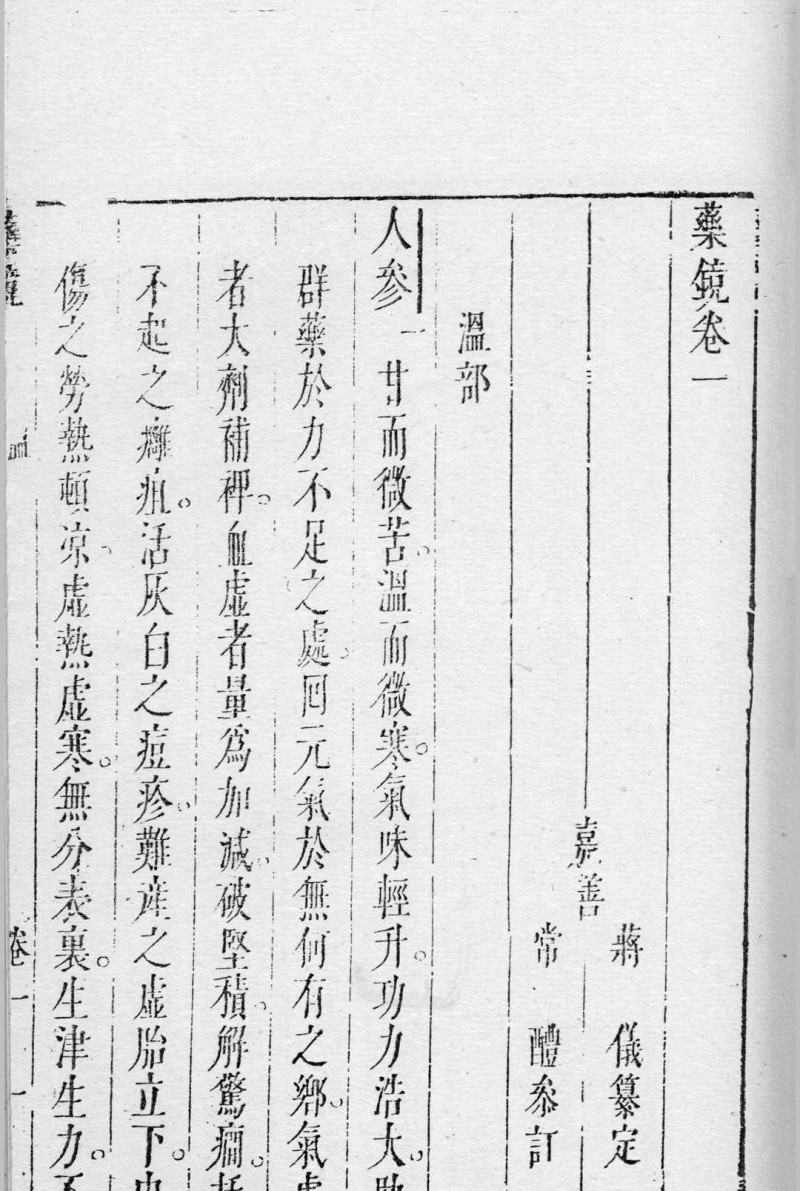 藥鏡卷一
嘉善
蔣 儀纂定
常 醴參訂
溫部
人參 甘而微苦。溫而微寒。氣味輕升。功力浩大。助
群藥於力不足之處。回元氣於無何有之鄉。氣虛
者大劑補裨。血虛者量為加減。破堅積。解驚癇。托
不起之癰疽。活灰白之痘疹。難產之虛胎立下。
傷之勞熱頓凉。虛熱虛寒。無分表裏。生津生力。不
藥鏡
卷一 一